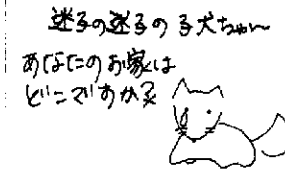 迷子の迷子の子犬ちゃん
あなたのお家は
どこですか?